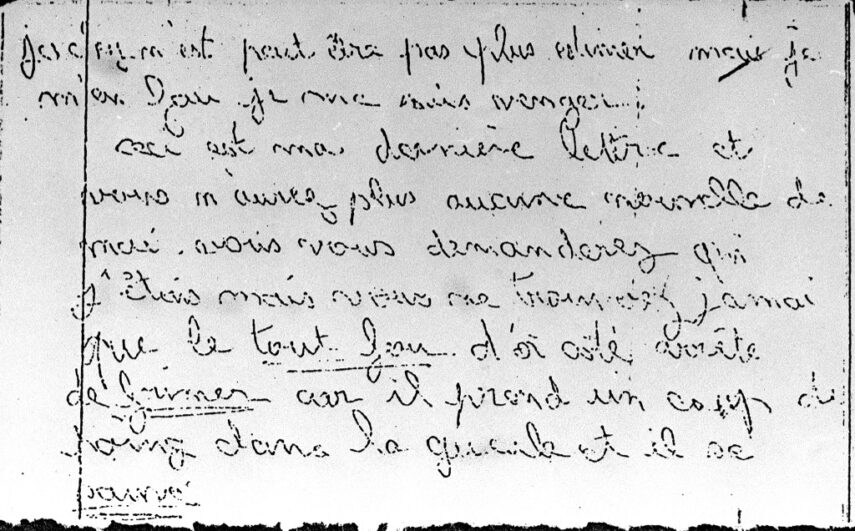 n'est peut être pas plus estimer mais je
m'en fou je me suis venger.
ceci est ma dernière lettre et
vous n'aurez plus aucune nouvelle de
moi. vous vous demanderez qui
j'êtais mais vous ne trouverez jamai
que le tout fou d'ôi côté arrête
de frimer car il prend un coup de
poing dans la gueule et il se
sauve.